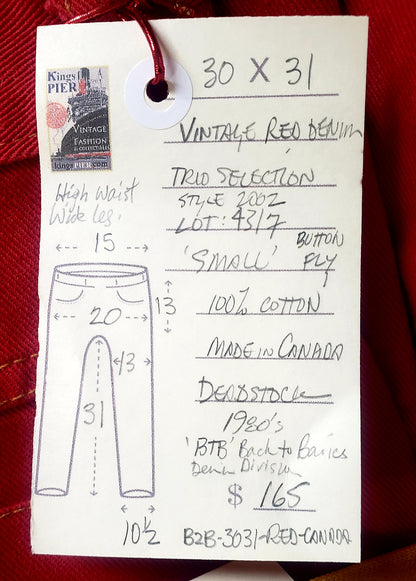 Kings
PIER
VINTAGE
FASHION
& COLLECTIBLES
kingsPIER.com
30 X 31
VINTAGE RED DENIM
TRIO SELECTION
STYLE 2002
LOT: 4317
'SMALL' BUTTON FLY
100% COTTON
MADE IN CANADA
DEADSTOCK
1980's
'BTB' Back to Basics
Denim Division
$ 165
B2B-3031-RED-CANADA
High Waist
Wide Leg.
15
13
20
13
31
10½